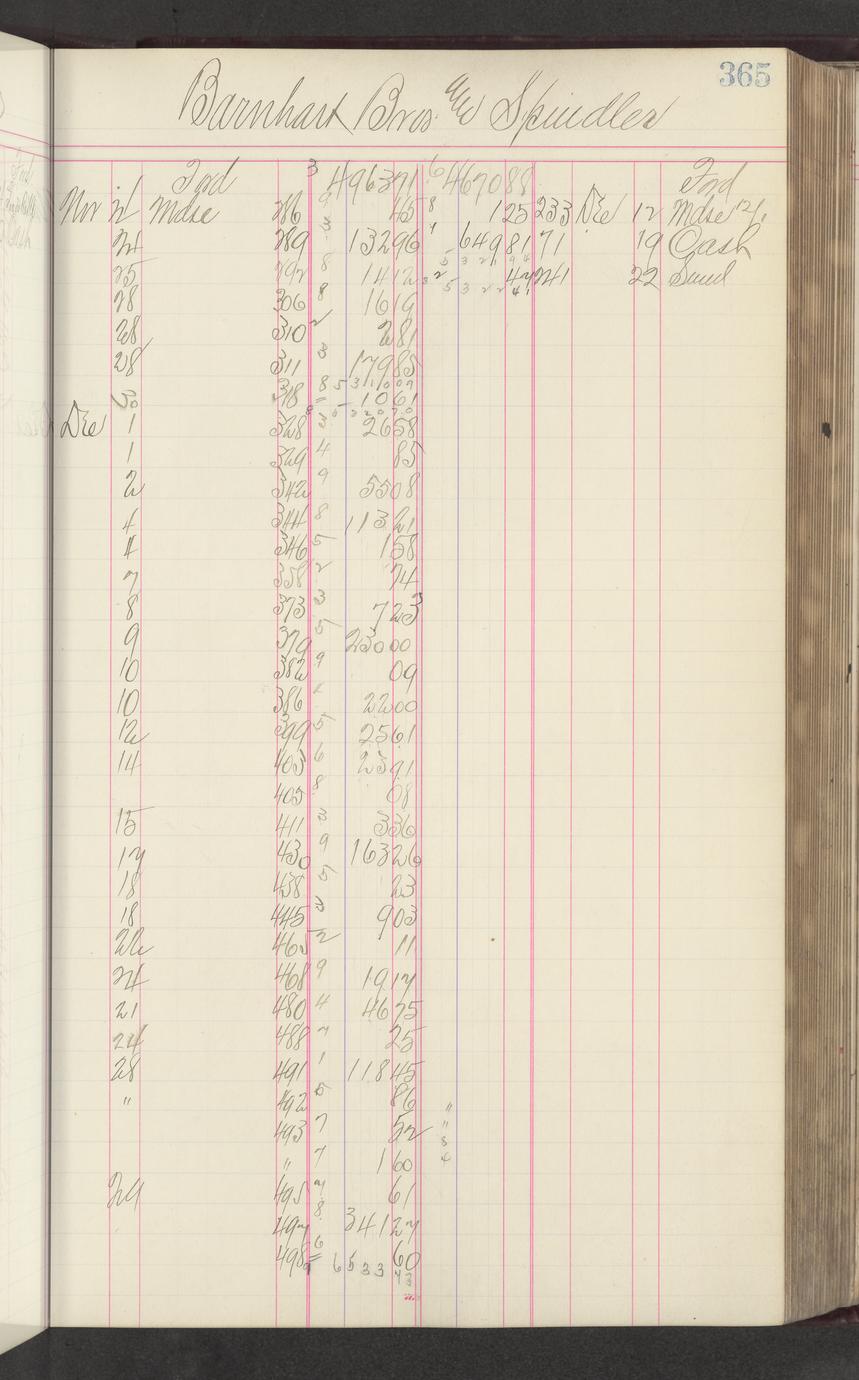 365
Barnhart Bros. and Spindler
Ford 3 4963 71 6 4670 88 Ford
Nov 21 Mdse 286 9 45 8 1 25 233 Dec 12 Mdse
24 289 3 132 96 4 649 81 71 19 Cash
25 292 8 14 12 241 22 Sund
28 306 8 16 19
28 310 2 2 81
28 311 3 179 85
5 3 1 0 0 9
30 318 8 10 61
5 3 2 0 7 0
Dec 1 328 3 26 58
1 329 4 85
2 342 9 55 08
4 344 8 113 21
4 346 5 1 58
7 358 2 74
8 373 3 7 23
9 379 5 230 00
10 382 9 09
10 386 22 00
12 399 5 25 61
14 403 6 23 91
405 8 08
15 411 3 3 36
17 430 9 163 26
18 438 5 23
18 445 3 9 03
22 465 2 11
24 468 9 19 17
21 480 4 46 75
24 488 7 25
28 491 1 118 45
" 492 5 86
493 7 52
" 7 1 60
29 495 7 61
497 8 341 27
498 6 60
6 5 3 3 4 3